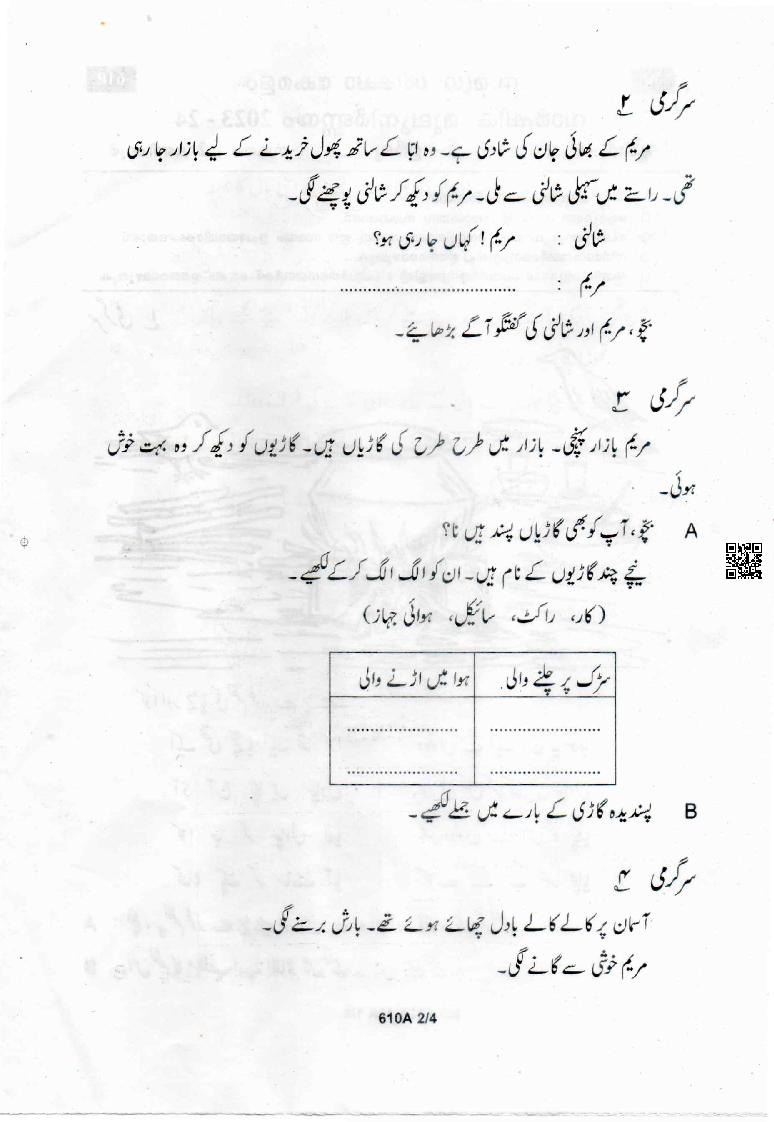 سرگرمی ۲
مریم کے بھائی جان کی شادی ہے۔ وہ ابّا کے ساتھ پھول خریدنے کے لیے بازار جا رہی
تھی۔ راستے میں سہیلی شالنی سے ملی۔ مریم کو دیکھ کر شالنی پوچھنے لگی۔
شالنی : مریم! کہاں جا رہی ہو؟
مریم : ..................................
بچّو، مریم اور شالنی کی گفتگو آگے بڑھائیے۔
سرگرمی ۳
مریم بازار پہنچی۔ بازار میں طرح طرح کی گاڑیاں ہیں۔ گاڑیوں کو دیکھ کر وہ بہت خوش
ہوئی۔
A بچّو، آپ کو بھی گاڑیاں پسند ہیں نا؟
نیچے چند گاڑیوں کے نام ہیں۔ ان کو الگ الگ کر کے لکھیے۔
(کار، راکٹ، سائیکل، ہوائی جہاز)
سڑک پر چلنے والی ہوا میں اڑنے والی
...................... ......................
...................... ......................
B پسندیدہ گاڑی کے بارے میں جملے لکھیے۔
سرگرمی ۴
آسمان پر کالے کالے بادل چھائے ہوئے تھے۔ بارش برسنے لگی۔
مریم خوشی سے گانے لگی۔
610A 2/4